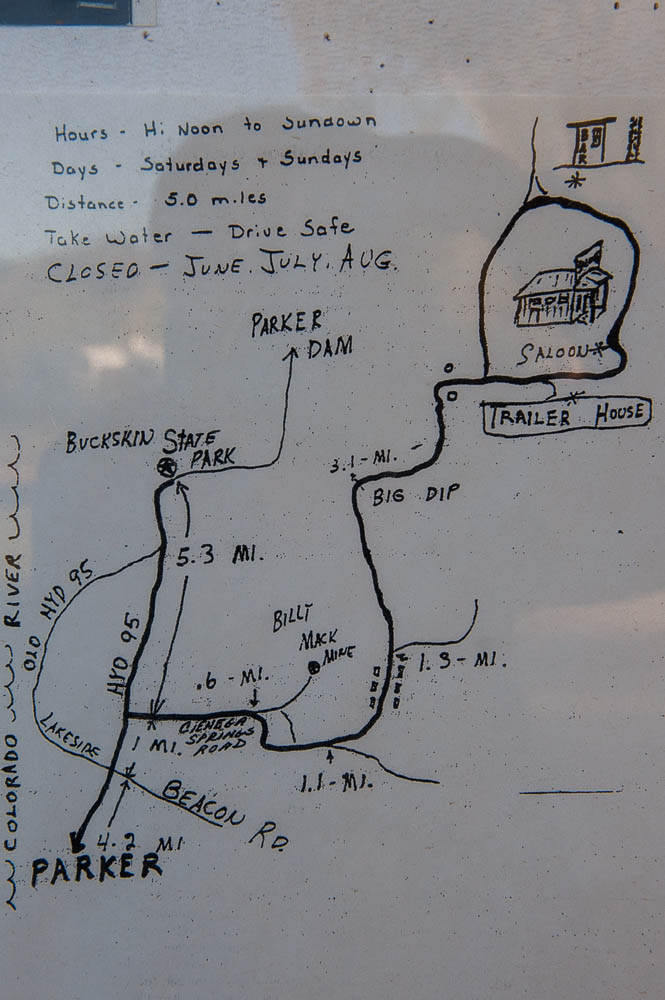 Hours - Hi Noon to Sundown
Days - Saturdays + Sundays
Distance - 5.0 miles
Take Water - Drive Safe
CLOSED - JUNE. JULY, AUG.
BAR
SALOON
TRAILER HOUSE
PARKER
DAM
BUCKSKIN STATE
PARK
3.1-MI.
BIG DIP
5.3 MI.
OLD HYD 95
HYD 95
COLORADO RIVER
BILLY
MACK
MINE
.6-MI.
1.3-MI.
CIENEGA
SPRINGS
ROAD
LAKESIDE
1 MI.
1.1-MI.
BEACON RD.
4.2 MI
PARKER